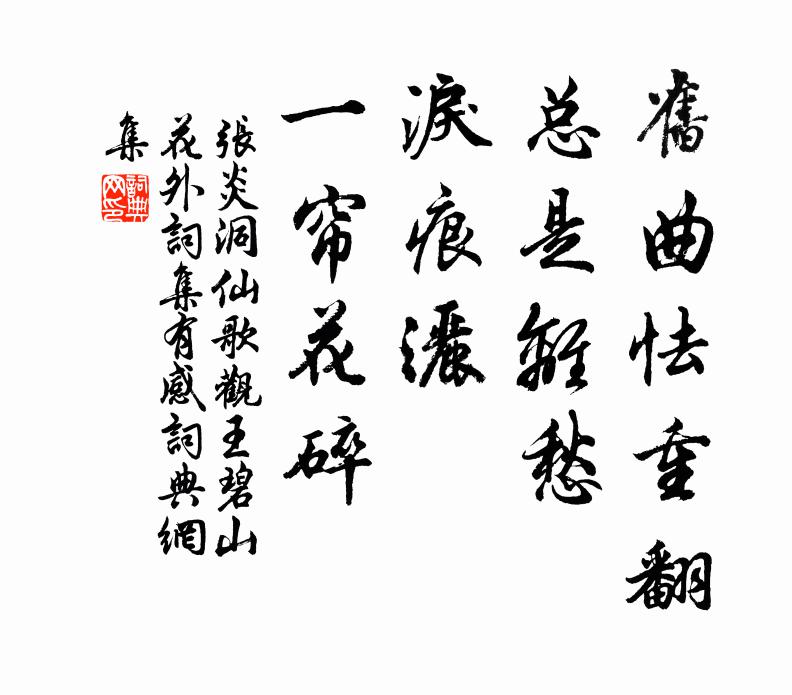 舊曲怯重翻
总是離愁
淚痕灑
一帘花碎
張炎洞仙歌觀王碧山
花外詞集有感詞典網
集
詞典
网印